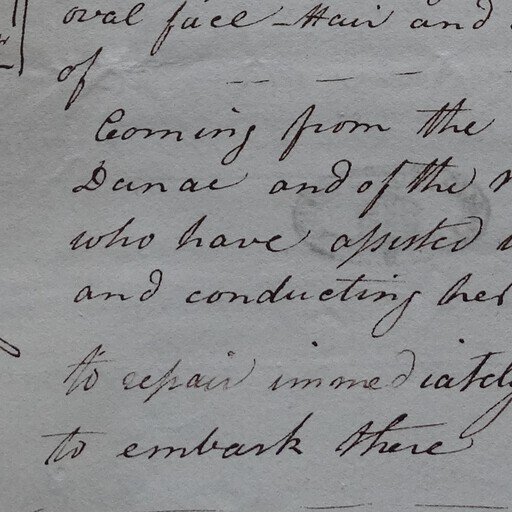 oval face - Hair and
of
Coming from the
Danae and of the
who have assisted
and conducting her
to repair immediately
to embark there